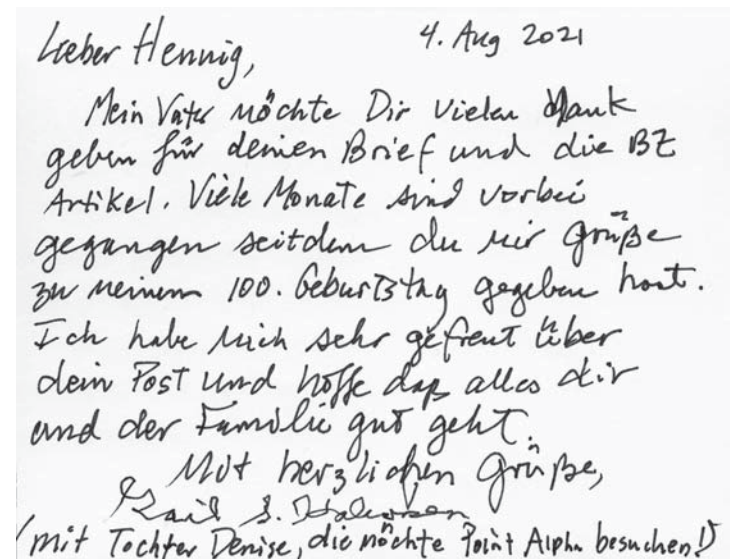 4. Aug 2021
Lieber Hennig,
Mein Vater möchte Dir vielen Dank
geben für deinen Brief und die BZ
Artikel. Viele Monate sind vorbei
gegangen seitdem du mir Grüße
zu meinem 100. Geburtstag gegeben hast.
Ich habe mich sehr gefreut über
dein Post und hoffe daß alles dir
und der Familie gut geht.
Mit herzlichen Grüße,
(mit Tochter Denise, die möchte Point Alpha besuchen!)